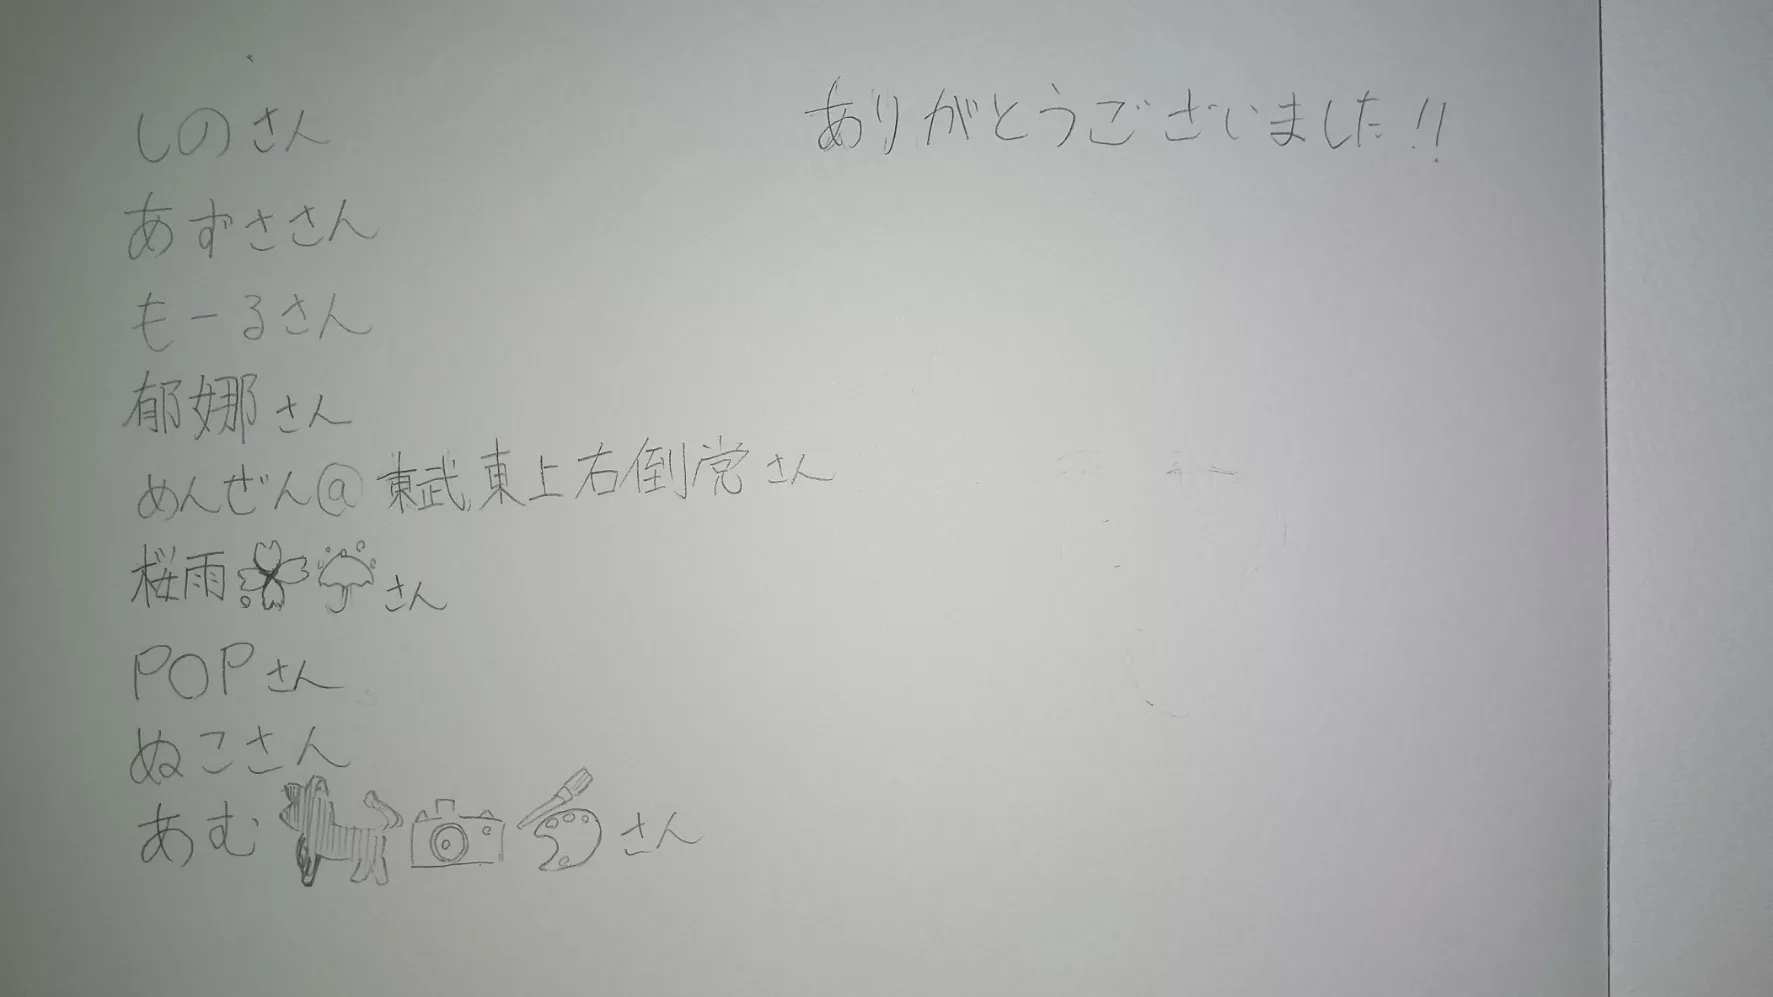 しのさん
ありがとうございました!!
あずささん
もーるさん
郁娜さん
めんぜん@東武東上右倒党さん
桜雨さん
POPさん
ぬこさん
あむさん